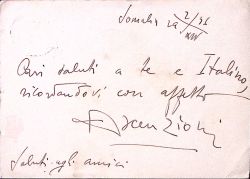 Somalia 29 2/36
XIV
Cari saluti a te e Italino,
ricordandovi con affetto
Ascenzioni
Saluti agli amici